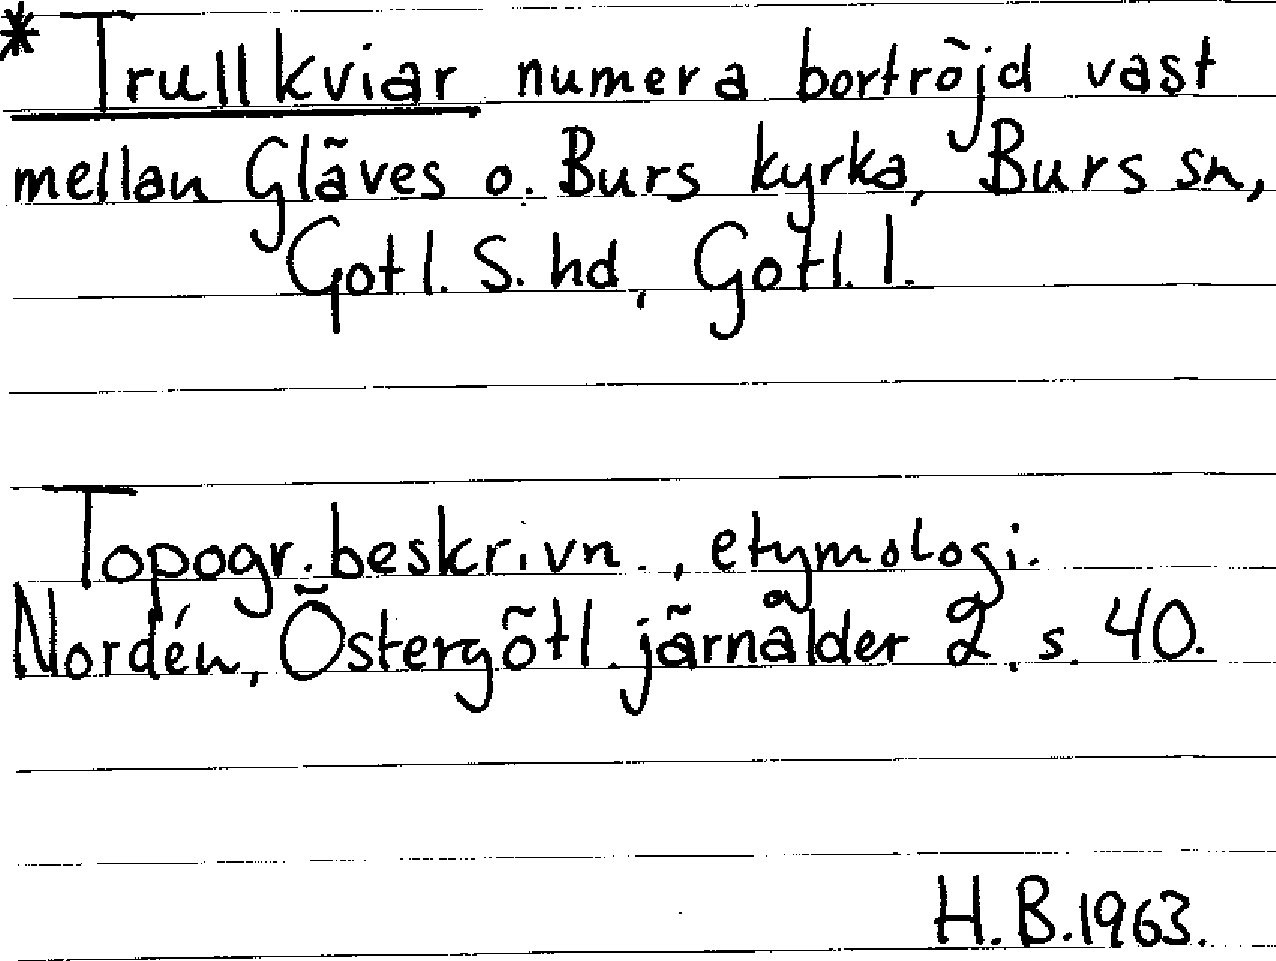 * Trullkviar numera bortröjd vast
mellan Gläves o. Burs kyrka, Burs sn,
Gotl. S. hd, Gotl. l.
Topogr. beskrivn., etymologi.
Nordén, Östergötl. järnålder 2, s. 40.
H.B. 1963.